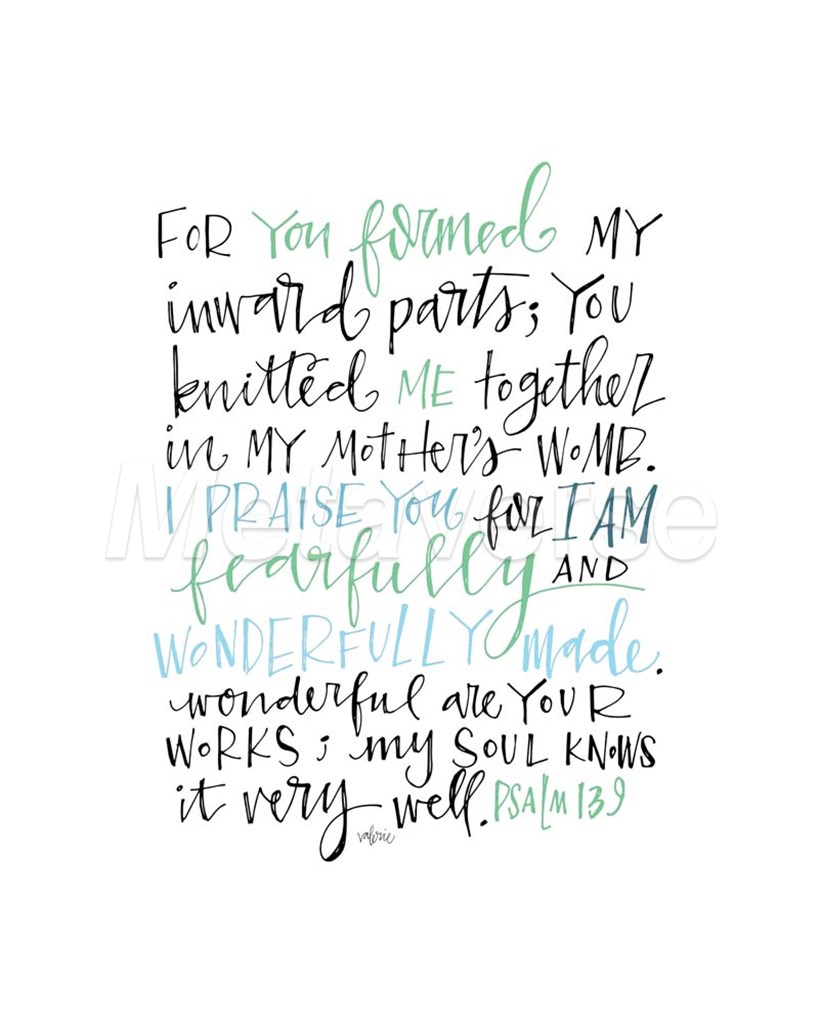 FOR You formed MY
inward parts; YOU
knitted ME together
in MY MOTHER'S WOMB.
I PRAISE YOU for I AM
Metaverse
fearfully AND
WONDERFULLY made.
wonderful are YOUR
WORKS; my SOUL KNOWS
it very well. PSALM 139
valerie